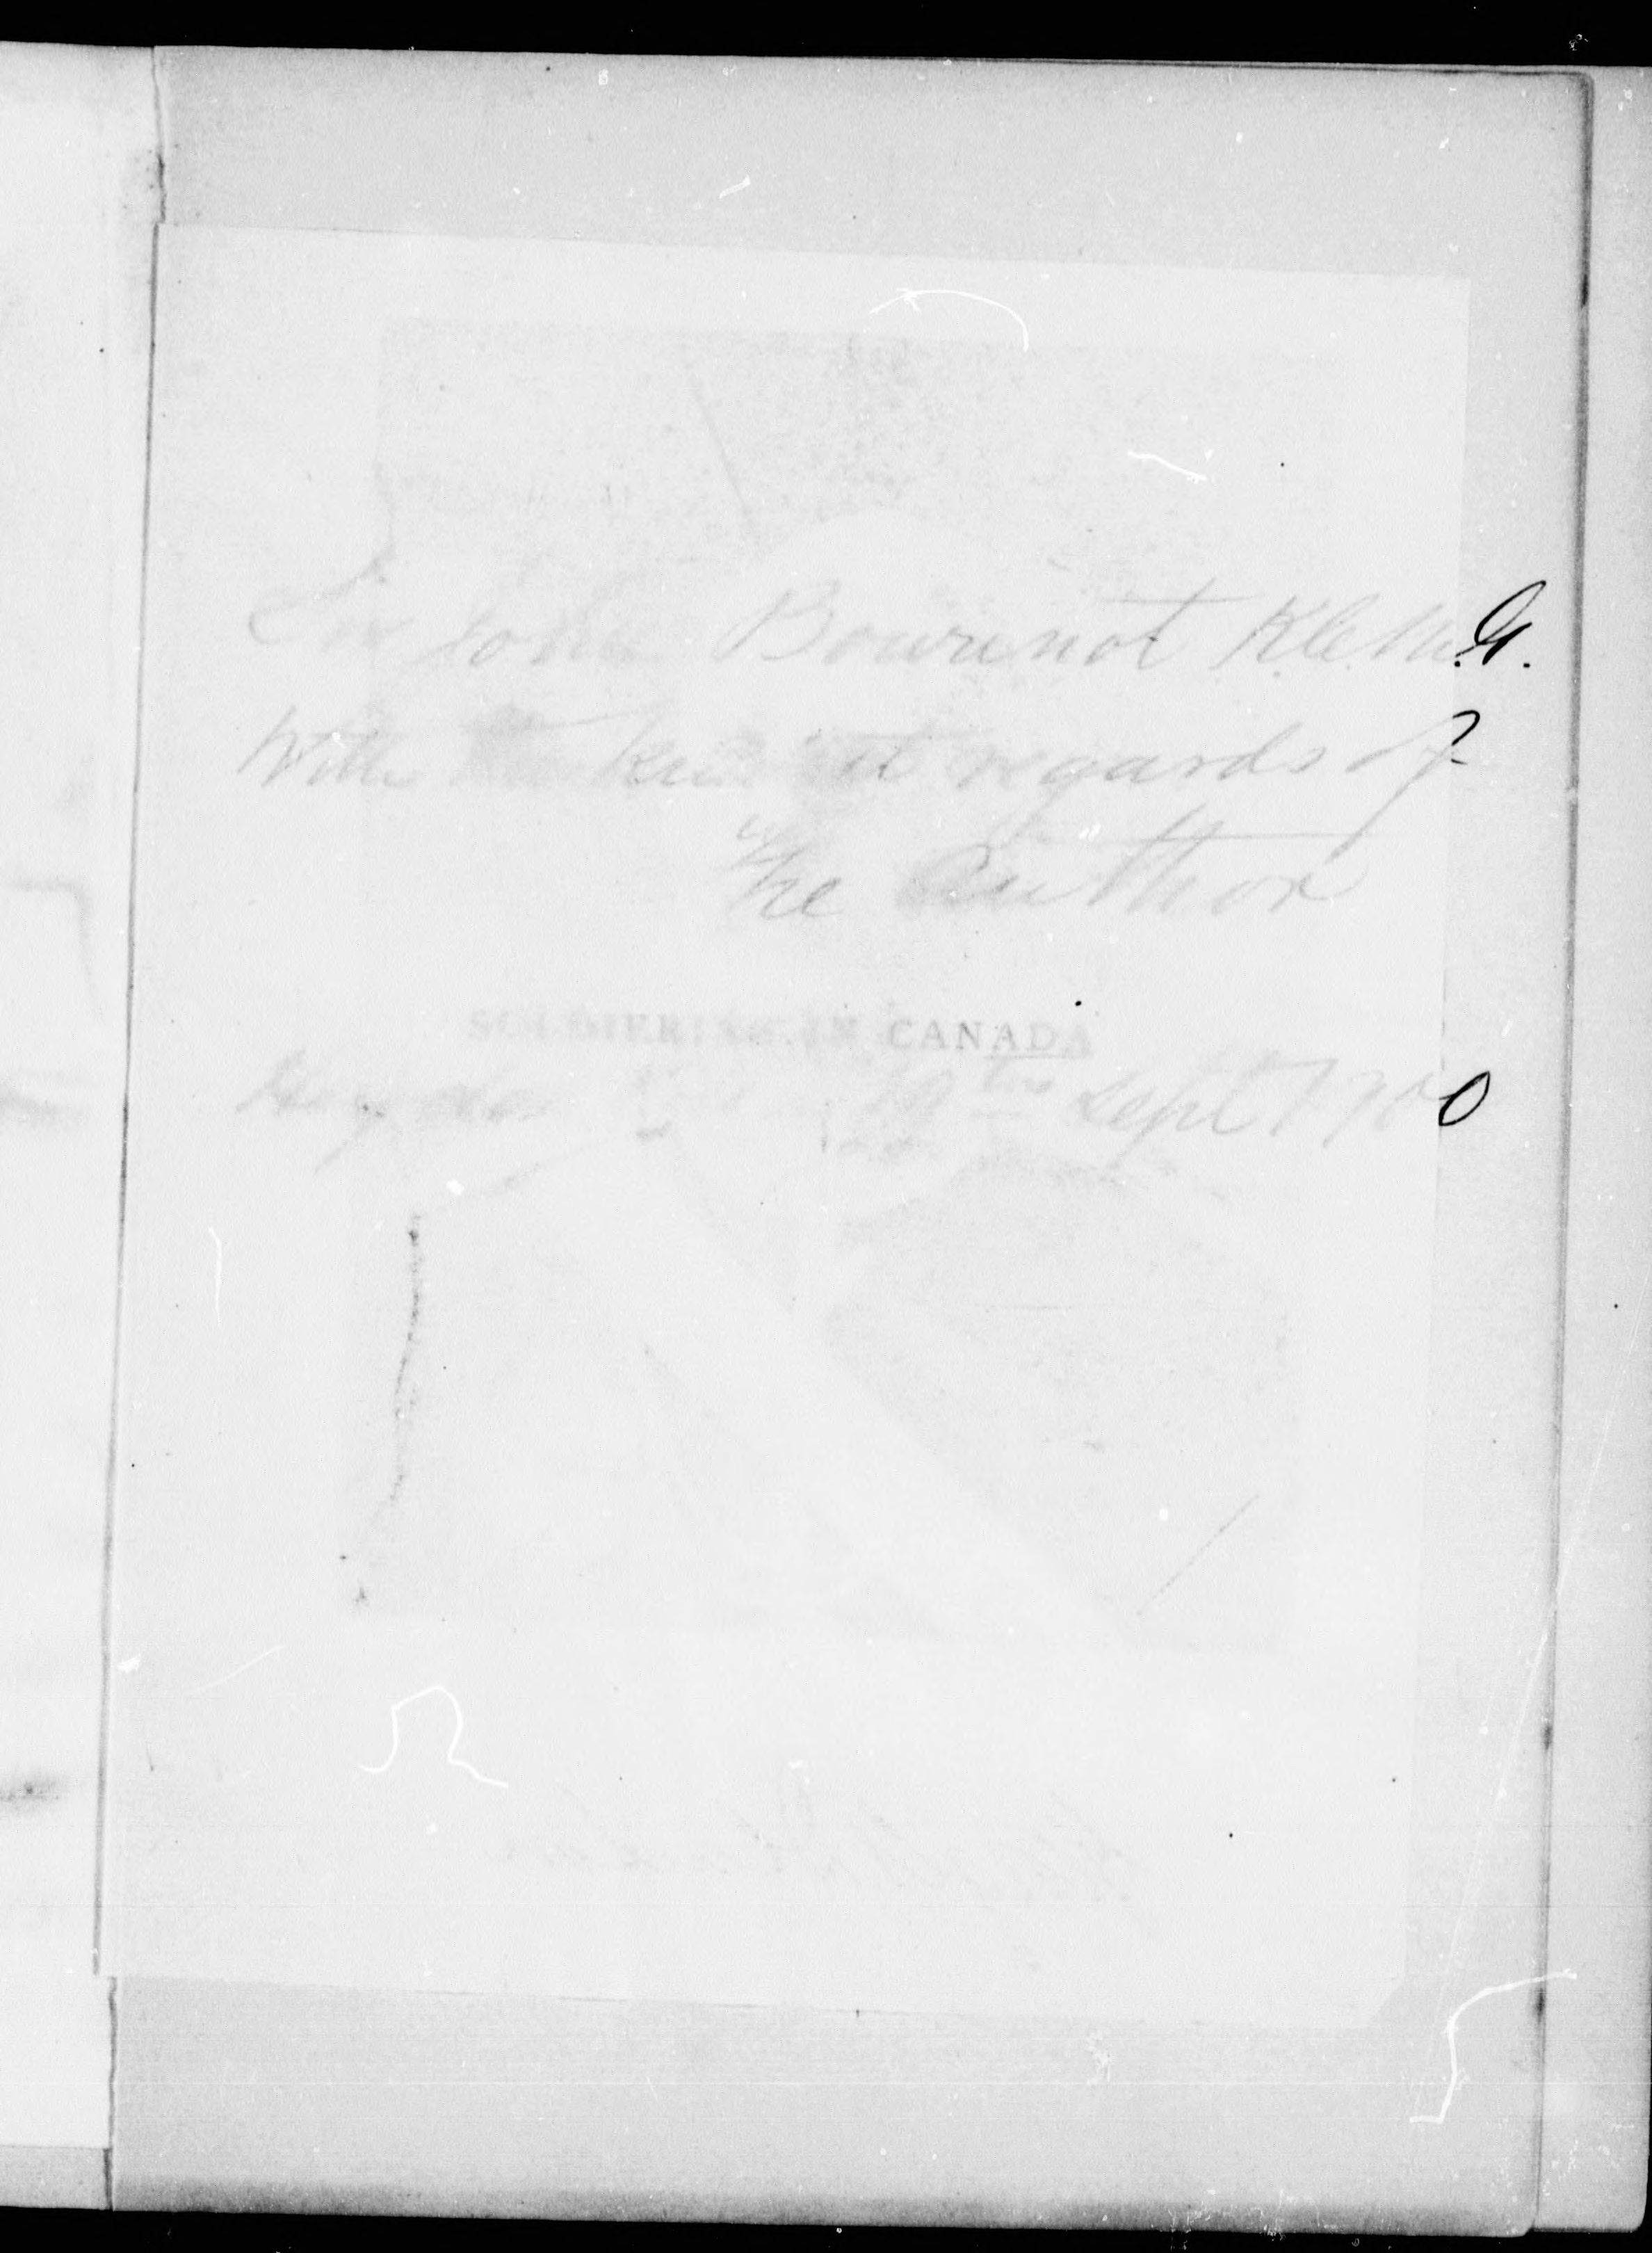 Sir John Bourinot K.C.M.G.
With the kindest regards of
The Author
SOLDIERING IN CANADA
Sept 1900